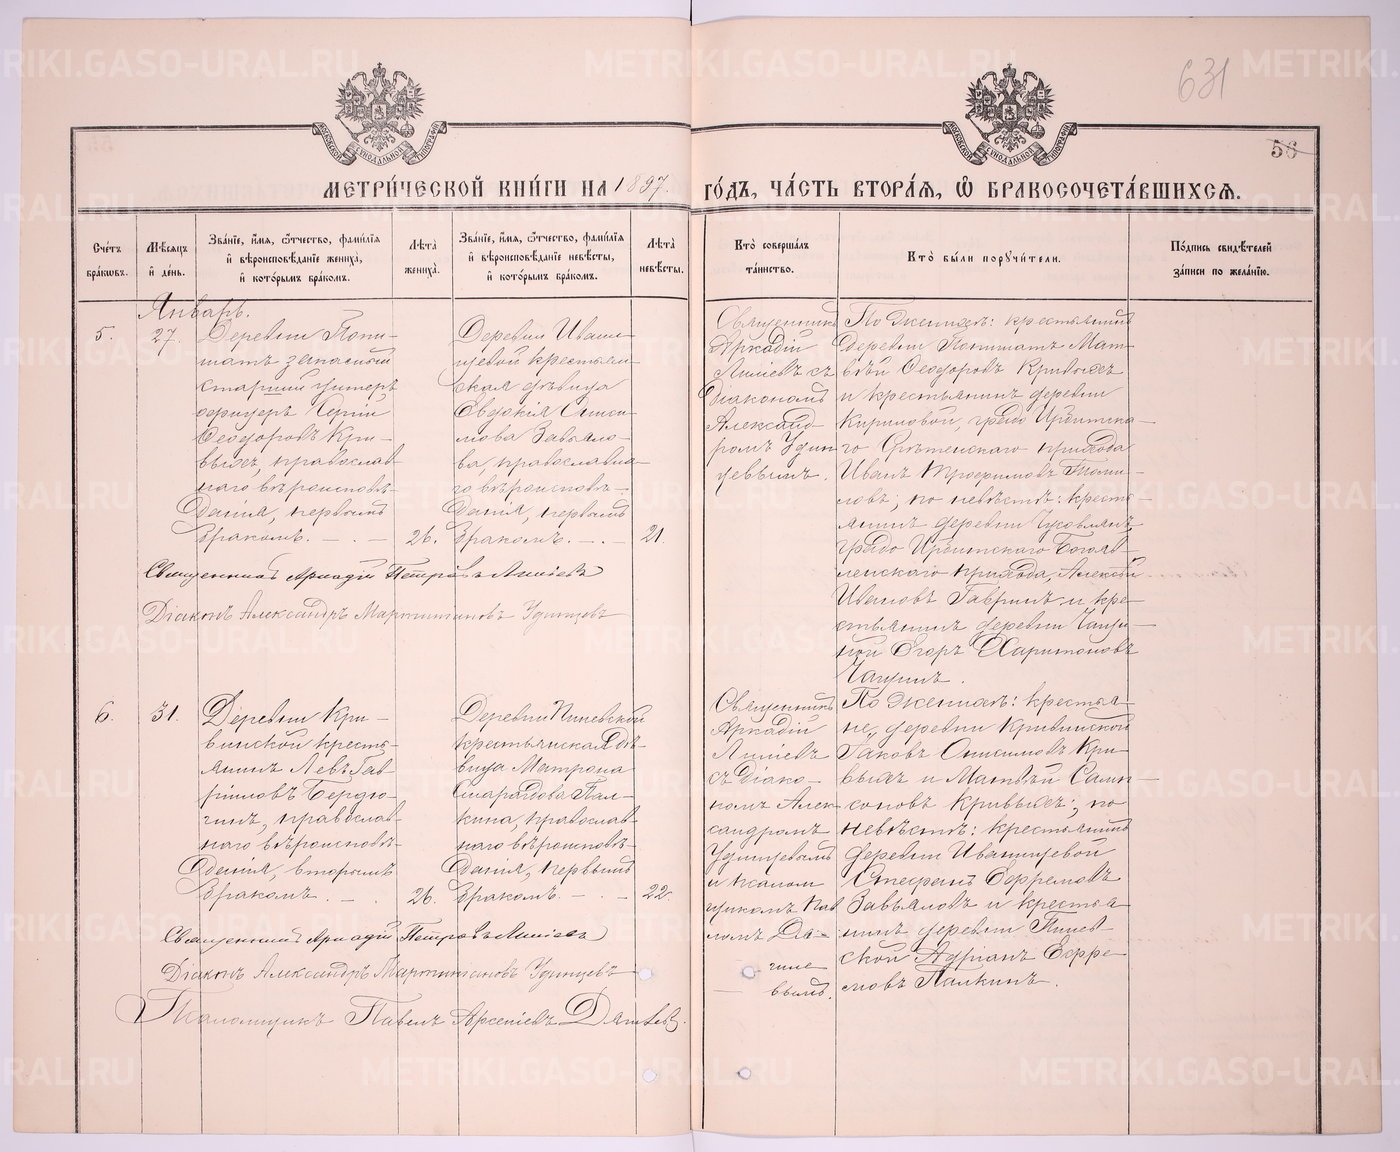 631
56
МОСКОВСКОЙ СѴНОДАЛЬНОЙ ТИПОГРАФІИ
МОСКОВСКОЙ СѴНОДАЛЬНОЙ ТИПОГРАФІИ
МЕТРИ́ЧЕСКОЙ КНИ́ГИ НА 1897 ГО́ДЪ, ЧА́СТЬ ВТОРА́Я, Ѡ҆ БРАКОСОЧЕТА́ВШИХСЯ.
Сче́тъ бра́кѡвъ.
Мѣ́сяцъ и҆ де́нь.
Зва́нїе, и҆́мя, ѻ҆́тчество, фами́лїя и҆ вѣроисповѣ́данїе жениха̀, и҆ кото́рымъ бра́комъ.
Лѣ́та жениха̀.
Зва́нїе, и҆́мя, ѻ҆́тчество, фами́лїя и҆ вѣроисповѣ́данїе невѣ́сты, и҆ кото́рымъ бра́комъ.
Лѣ́та невѣ́сты.
Кто̀ соверша́лъ та́инство.
Кто̀ бы́ли поручи́тели.
По́дпись свидѣ́телей за́писи по жела́нїю.
Январь.
5.
27.
Деревни Попи-
шатъ запасный
старшій унтеръ
офицеръ Сергій
Ѳеодоровъ Кри-
выхъ, православ-
наго вѣроисповѣ-
данія, первымъ
бракомъ.
26.
Деревни Ивани-
щевой крестьян-
ская дѣвица
Евдокія Ониси-
мова Завьяло-
ва, православна-
го вѣроисповѣ-
данія, первымъ
бракомъ.
21.
Священникъ
Аркадій
съ
діакономъ
Александ-
ромъ Удин-
цевымъ.
По женихѣ: крестьянинъ
деревни Попишатъ Мат-
вѣй Ѳеодоровъ Кривыхъ
и крестьянинъ деревни
Кириловой, градо Ирбитска-
го Срѣтенскаго прихода
Иванъ Трофимовъ Томи-
ловъ; по невѣстѣ: кресть-
янинъ деревни
градо Ирбитскаго Богояв-
ленскаго прихода, Алексѣй
Ивановъ Гавринъ и кре-
стьянинъ деревни Чащи-
ной Егоръ Харитоновъ
Чащинъ.
Священникъ Аркадій Петровъ
Діаконъ Александръ Мартиніановъ Удинцевъ
6.
31.
Деревни Кри-
винской кресть-
янинъ Левъ Гав-
риловъ Бердю-
гинъ, православ-
наго вѣроисповѣ-
данія, вторымъ
бракомъ.
26.
Деревни Пиневской
крестьянская дѣ-
вица Матрона
Спиридова Пал-
кина, православ-
наго вѣроисповѣ-
данія, первымъ
бракомъ.
22.
Священникъ
Аркадій
съ діако-
номъ Алек-
сандромъ
Удинцевымъ
и псалом-
щикомъ Пав-
ломъ Дя-
гиле-
вымъ.
По женихѣ: крестья-
не, деревни Кривинской
Іаковъ Онисимовъ Кри-
выхъ и Матвѣй Самп-
соновъ Кривыхъ; по
невѣстѣ: крестьянинъ
деревни Иванищевой
Стефанъ Ефремовъ
Завьяловъ и крестья-
нинъ деревни Пинев-
ской Адріанъ Ефре-
мовъ Палкинъ.
Священникъ Аркадій Петровъ
Діаконъ Александръ Мартиніановъ Удинцевъ
Псаломщикъ Павелъ Арсеніевъ Дягилевъ.
METRIKI.GASO-URAL.RU